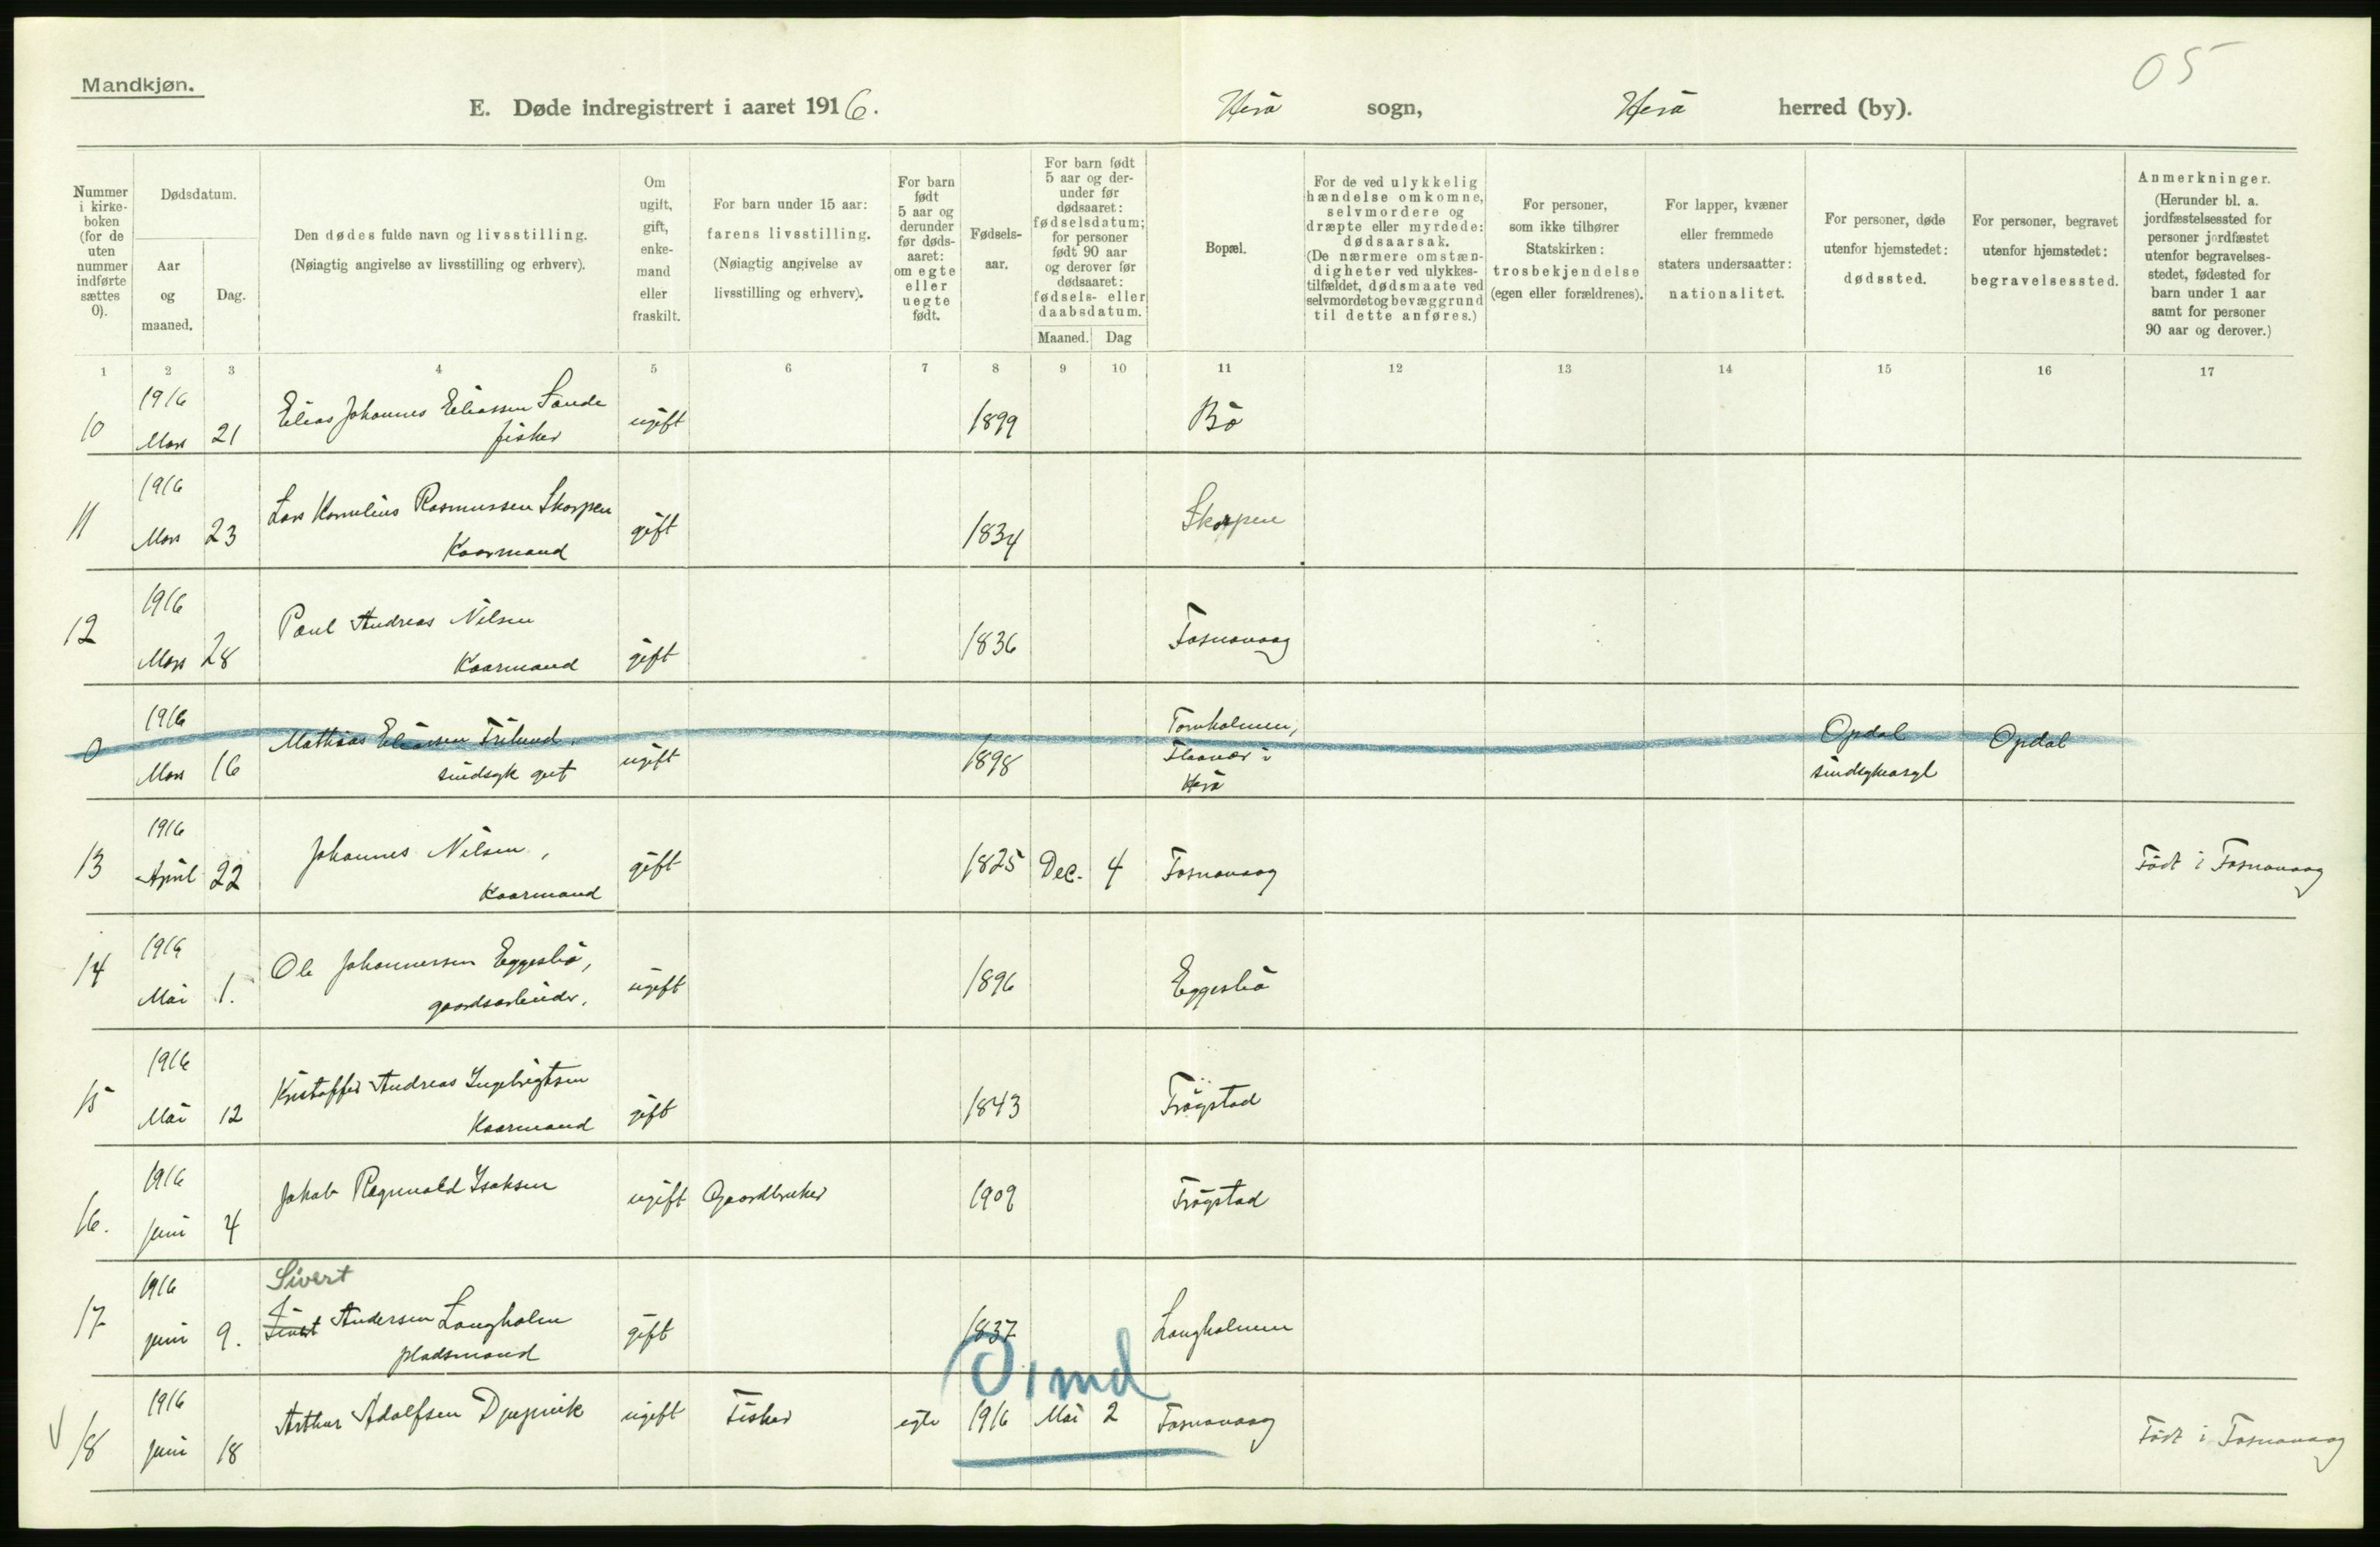 05
Mandkjøn.
E. Døde indregistrert i aaret 1916. Herø sogn, Herø herred (by).
Nummer i kirke-boken (for de uten nummer indførte sættes 0).
Dødsdatum.
Aar og maaned.
Dag.
Den dødes fulde navn og livsstilling.
(Nøiagtig angivelse av livsstilling og erhverv).
Om ugift, gift, enke-mand eller fraskilt.
For barn under 15 aar: farens livsstilling.
(Nøiagtig angivelse av livsstilling og erhverv).
For barn født 5 aar og derunder før døds-aaret: om egte eller uegte født.
Fødsels-aar.
For barn født 5 aar og der-under før dødsaaret: fødselsdatum; for personer født 90 aar og derover før dødsaaret: fødsels- eller daabsdatum.
Maaned. Dag
Bopæl.
For de ved ulykkelig hændelse omkomne, selvmordere og dræpte eller myrdede: dødsaarsak.
(De nærmere omstæn-digheter ved ulykkes-tilfældet, dødsmaate ved selvmordet og bevæggrund til dette anføres.)
For personer, som ikke tilhører Statskirken: trosbekjendelse (egen eller forældrenes).
For lapper, kvæner eller fremmede staters undersaatter: nationalitet.
For personer, døde utenfor hjemstedet: dødssted.
For personer, begravet utenfor hjemstedet: begravelsessted.
Anmerkninger.
(Herunder bl. a. jordfæstelsessted for personer jordfæstet utenfor begravelses-stedet, fødested for barn under 1 aar samt for personer 90 aar og derover.)
1 2 3 4 5 6 7 8 9 10 11 12 13 14 15 16 17
1916
10 Mars 21 Elias Johannes Eliassen Sande ugift 1899 Bø
fisker
1916
11 Mars 23 Lars Kornelius Rasmussen Skorpen gift 1834 Skorpen
Kaarmand
1916
12 Mars 28 Paul Andreas Nilsen gift 1836 Fosnavaag
Kaarmand
1916 Tornholmen,
0 Mars 16 Mathias Eliassen ugift 1898 i Opdal Opdal
sindsyk gut Herø sindsykeasyl
1916
13 April 22 Johannes Nilsen, gift 1825 Dec. 4 Fosnavaag Født i Fosnavaag
Kaarmand
1916
14 Mai 1. Ole Johannessen Eggesbø, ugift 1896 Eggesbø
gaardsarbeider.
1916
15 Mai 12 Kristoffer Andreas Ingebrigtsen gift 1843 Frøystad
Kaarmand
1916
16. Juni 4 Jakob Ragnvald Isaksen ugift Gaardbruker 1909 Frøystad
1916 Sivert
17 Juni 9. Sivert Andersen Langholm gift 1837 Langholmen
pladsmand
0 1 md
1916
18 Juni 18 Arthur Adolfsen Djupvik ugift Fisker egte 1916 Mai 2 Fosnavaag Født i Fosnavaag